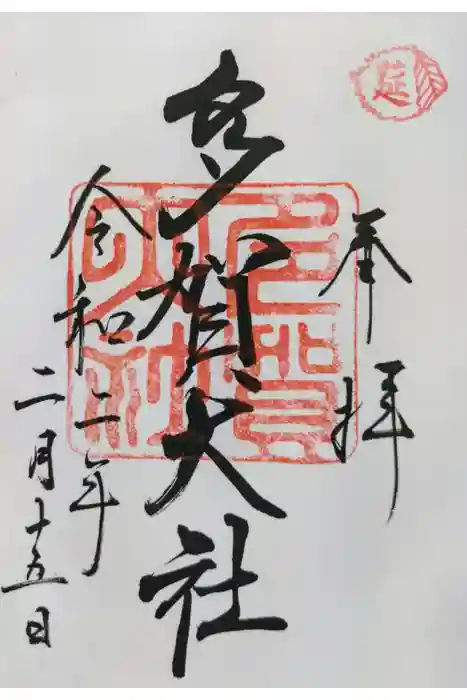 延
奉拝
多賀大社
令和二年
二月十五日
多賀大社